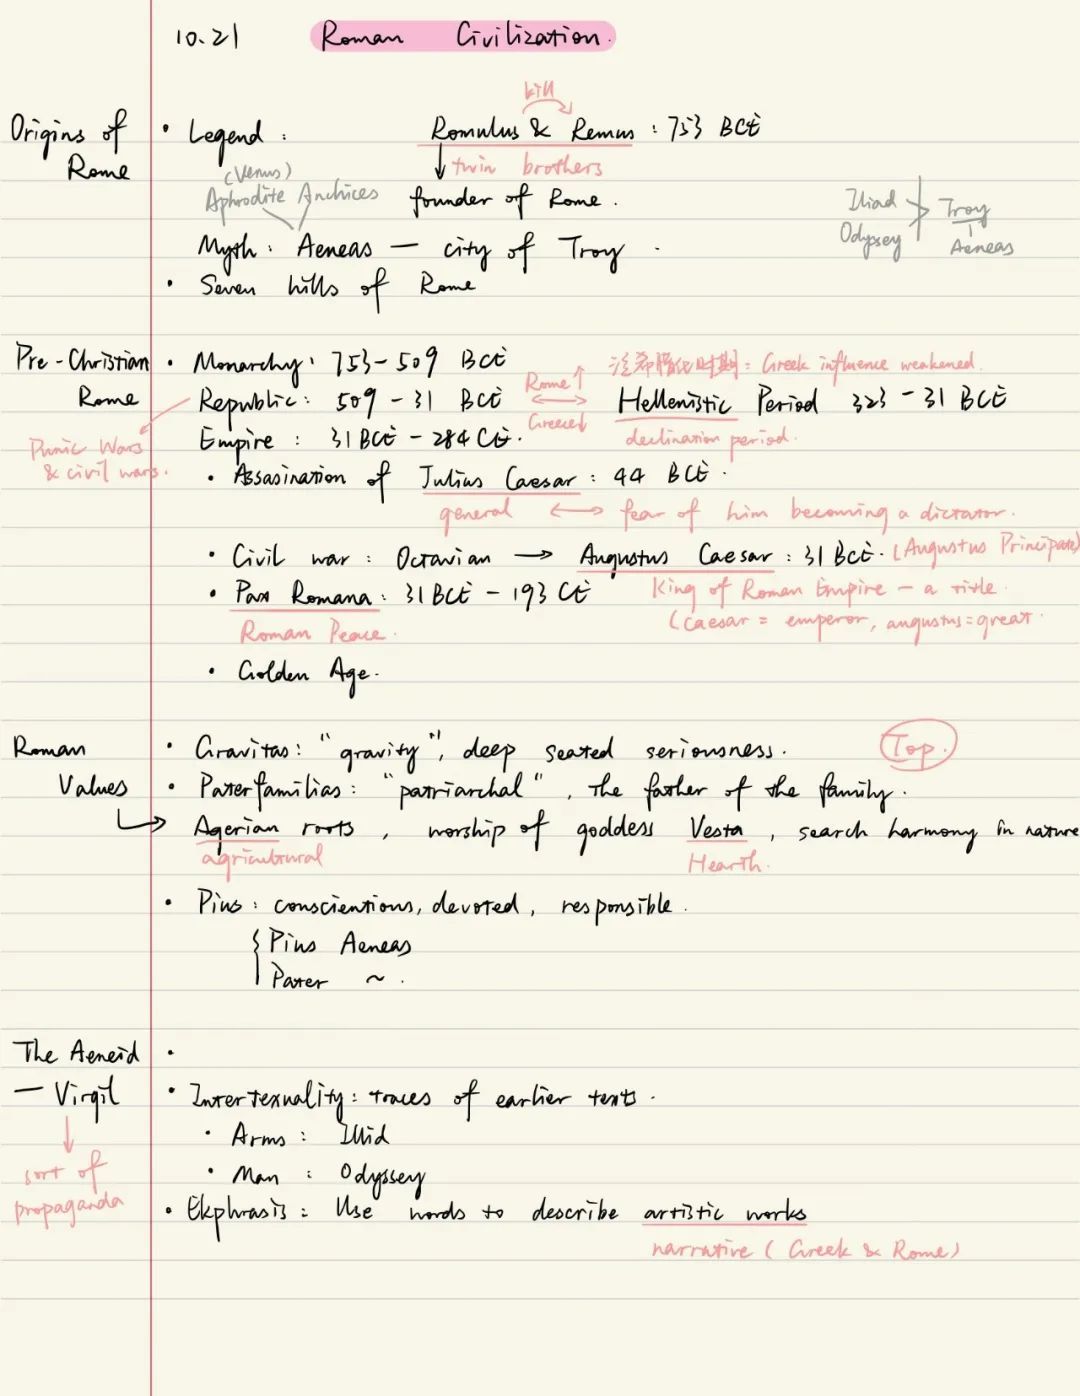 10.21 Roman Civilization.
kill
Origins of Rome
• Legend : Romulus & Remus : 753 BCE
twin brothers
(Venus)
Aphrodite Anchices
founder of Rome.
Iliad
Odyssey
Troy
Aeneas
Myth : Aeneas — city of Troy.
• Seven hills of Rome
Pre-Christian Rome
• Monarchy : 753-509 BCE
泛希腊化时期 : Greek influence weakened.
Rome ↑
Republic : 509 - 31 BCE ↔ Hellenistic Period 323 - 31 BCE
Greece ↓
Empire : 31 BCE - 284 CE.
declination period.
Punic Wars
& civil wars.
• Assasination of Julius Caesar : 44 BCE.
general ↔ fear of him becoming a dictator.
• Civil war : Octavian → Augustus Caesar : 31 BCE. (Augustus Principate)
• Pax Romana : 31 BCE - 193 CE
King of Roman Empire - a title.
Roman Peace.
(Caesar = emperor, angustus = great.
• Golden Age.
Roman Values
• Gravitas : "gravity", deep seated seriousness.
Top.
• Paterfamilias : "patriarchal", the father of the family.
→ Agerian roots, worship of goddess Vesta, search harmony in nature
agricultural
Hearth.
• Pius : conscientious, devoted, responsible.
Pius Aeneas
Pater ~.
The Aeneid
— Virgil
•
• Intertexnality : traces of earlier texts.
• Arms : Illid
• Man : Odyssey
↓
sort of
propaganda
• Ekphrasis : Use words to describe artistic works
narrative (Greek & Rome)